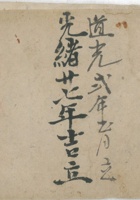 道光貳年五月立
光緒廿七年吉立